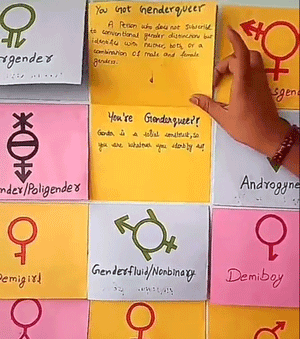 You Got Genderqueer
A Person who does not subscribe
to conventional gender distinction but
identifies with neither, both, or a
combination of male and female
genders.
rgender
sgen
You're Genderqueer
Gender is a social construct, so
you are whatever you identify as
nder/Poligender
Androgyne
emigirl
Genderfluid/Nonbinary
Demiboy